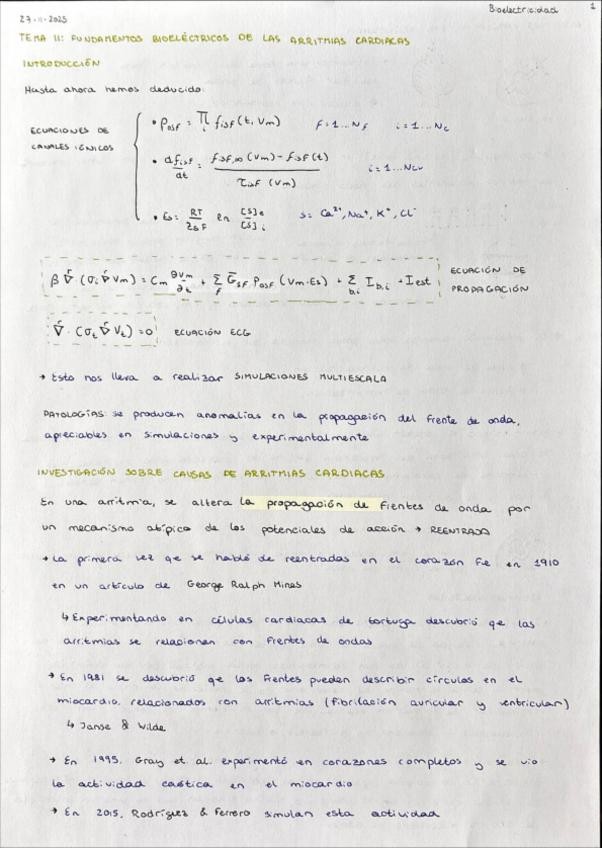 Bioelectricidad 1
27-11-2025
TEMA 11: FUNDAMENTOS BIOELÉCTRICOS DE LAS ARRITMIAS CARDIACAS
INTRODUCCIÓN
Hasta ahora hemos deducido:
ECUACIONES DE CANALES IÓNICOS
• P_{OSF} = ∏_i f_{iSF} (t, Vm) F=1...N_F i=1...N_C
• df_{iSF}/dt = (f_{iSF,∞} (Vm) - f_{iSF} (t)) / τ_{iSF} (Vm) i=1...N_{CV}
• Es = RT/(Z_S F) ln [S]e/[S]i s = Ca²⁺, Na⁺, K⁺, Cl⁻
β ∇ (σi ∇ Vm) = Cm ∂Vm/∂t + Σ_F G_{SF} P_{OSF} (Vm-Es) + Σ_{b,i} I_{b,i} + Iest ECUACIÓN DE PROPAGACIÓN
∇ · (σt ∇ Vt) = 0 ECUACIÓN ECG
→ Esto nos lleva a realizar SIMULACIONES MULTIESCALA
PATOLOGÍAS: se producen anomalías en la propagación del frente de onda,
apreciables en simulaciones y experimentalmente
INVESTIGACIÓN SOBRE CAUSAS DE ARRITMIAS CARDIACAS
En una arritmia, se altera la propagación de frentes de onda por
un mecanismo atípico de los potenciales de acción → REENTRADA
→ La primera vez que se habló de reentradas en el corazón fue en 1910
en un artículo de George Ralph Mines
↳ Experimentando en células cardiacas de tortuga descubrió que las
arritmias se relacionen con frentes de ondas
→ En 1981 se descubrió que los frentes pueden describir círculos en el
miocardio, relacionados con arritmias (fibrilación auricular y ventricular)
↳ Janse & Wilde
→ En 1995, Gray et al. experimentó en corazones completos y se vio
la actividad caótica en el miocardio
→ En 2015, Rodríguez & Ferrero simulan esta actividad